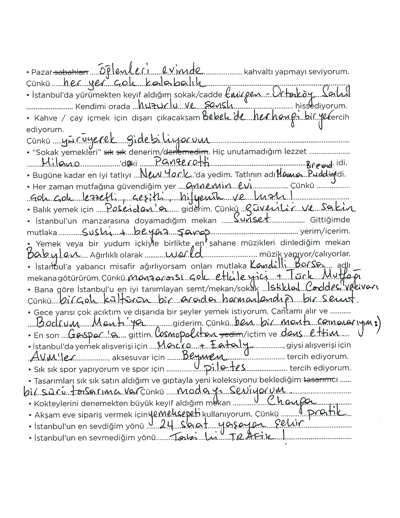 • Pazar sabahları öğlenleri evimde kahvaltı yapmayı seviyorum.
Çünkü her yer çok kalabalık
• İstanbul'da yürümekten keyif aldığım sokak/cadde Emirgan - Ortaköy Sahil
Kendimi orada huzurlu ve şanslı hissediyorum.
• Kahve / çay içmek için dışarı çıkacaksam Bebek'de herhangi bir yer tercih
ediyorum.
Çünkü yürüyerek gidebiliyorum
• "Sokak yemekleri" sık sık denerim/denemedim. Hiç unutamadığım lezzet
Milano 'daki Panzerotti idi.
• Bugüne kadar en iyi tatlıyı New York 'da yedim. Tatlının adı Mama Bread Pudding di.
• Her zaman mutfağına güvendiğim yer annemin evi Çünkü
çok çok lezzetli, çeşitli, hijyenik ve hızlı!
• Balık yemek için Poseidon'a giderim. Çünkü güvenilir ve sakin
• İstanbul'un manzarasına doyamadığım mekan Sunset Gittiğimde
mutlaka sushi + beyaz şarap yerim/içerim.
• Yemek veya bir yudum içkiyle birlikte en sahane müzikleri dinlediğim mekan
Babylon Ağırlıklı olarak world müzik yapıyor/çalıyorlar.
• İstanbul'a yabancı misafir ağırlıyorsam onları mutlaka Kandilli Borsa adlı
mekana götürürüm. Çünkü manzarası çok etkileyici + Türk Mutfağı
• Bana göre İstanbul'u en iyi tanımlayan semt/mekan/sokak İstiklal Caddesi ve civarı
Çünkü birçok kültürün bir arada harmanlandığı bir semt.
• Gece yarısı çok acıktım ve dışarıda bir şeyler yemek istiyorum. Çantamı alır ve
Bodrum Mantı'ya giderim. Çünkü ben bir mantı canavarıyım :)
• En son Gaspar'a gittim. Cosmopolitan yedim/içtim ve dans ettim
• İstanbul'da yemek alışverişi için Macro + Eataly, giysi alışverişi için
AVM'ler, aksesuvar için Beymen tercih ediyorum.
• Sık sık spor yapıyorum ve spor için pilates tercih ediyorum.
• Tasarımları sık sık satın aldığım ve gıptayla yeni koleksiyonu beklediğim tasarımcı
bir sürü tasarımcı var Çünkü modayı seviyorum
• Kokteylerini denemekten büyük keyif aldığım mekan Changa
• Akşam eve sipariş vermek için yemeksepeti kullanıyorum. Çünkü pratik
• İstanbul'un en sevdiğim yönü 24 saat yaşayan şehir
• İstanbul'un en sevmediğim yönü Tabi ki TRAFİK!